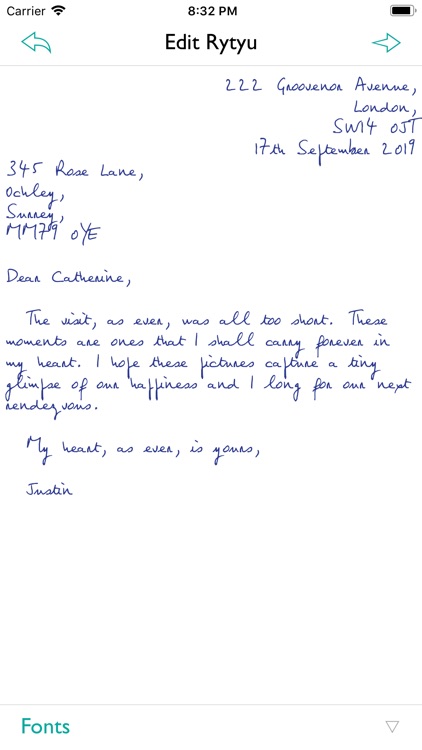 Carrier 8:32 PM
Edit Rytyu
222 Groovenor Avenue,
London,
SW14 0JT
17th September 2019
345 Rose Lane,
Ochley,
Surrey,
MM79 0YE
Dear Catherine,
The visit, as ever, was all too short. These
moments are ones that I shall carry forever in
my heart. I hope these pictures capture a tiny
glimpse of our happiness and I long for our next
rendezvous.
My heart, as ever, is yours,
Justin
Fonts